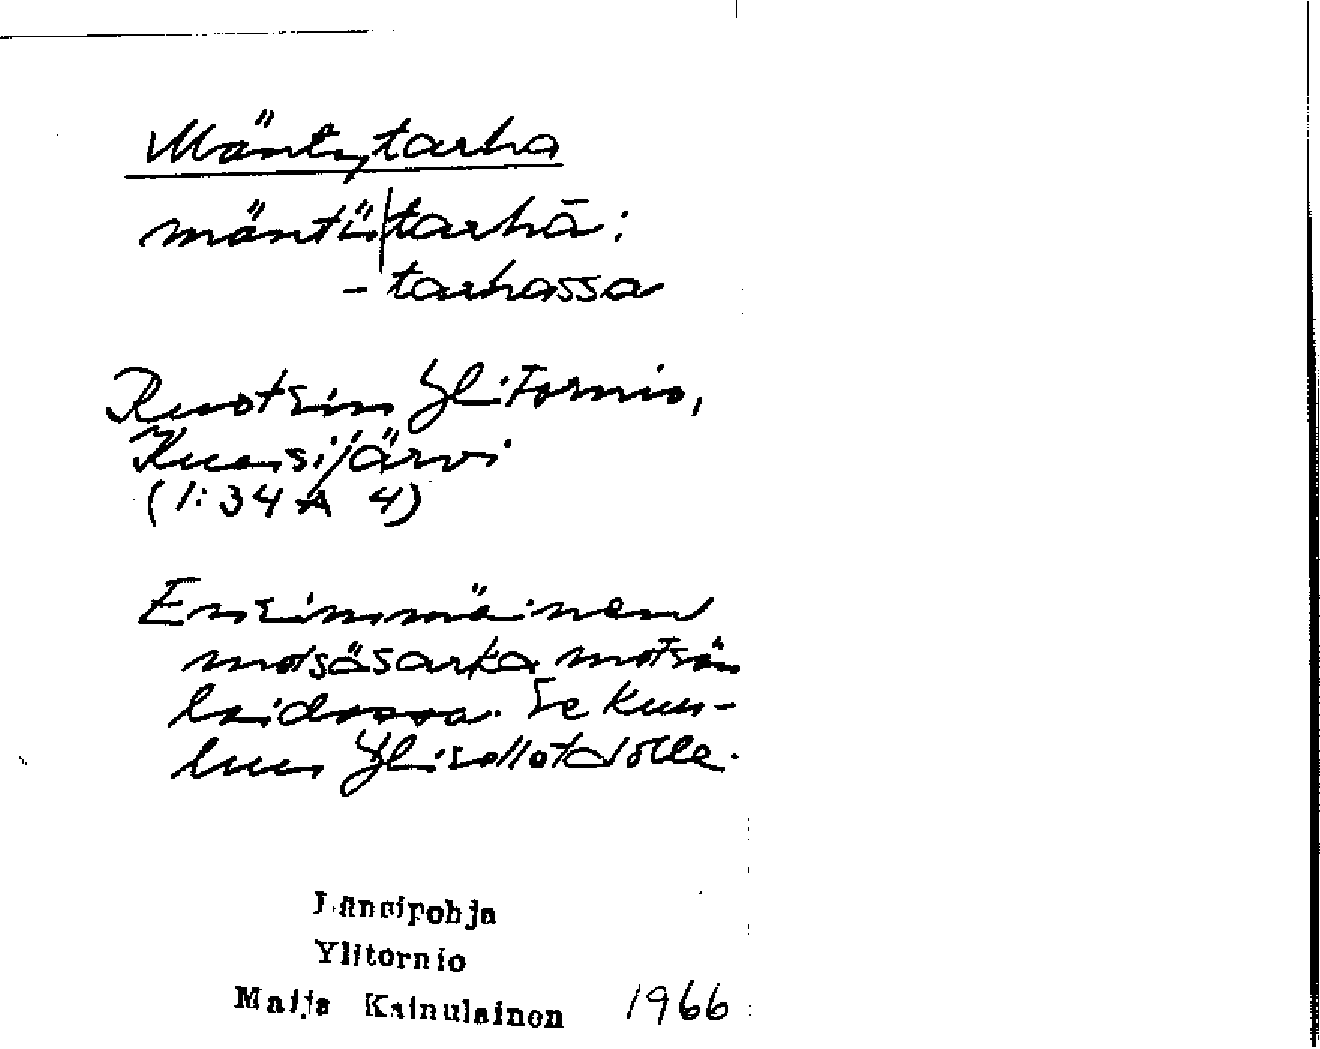 Mäntytarha
mäntü|tarhā:
-tarhassa
Ruotsin Ylitornio,
Kuusijärvi
(1:34 A 4)
Ensimmäinen
motsäsarka motsän
laidassa. Se kuu-
luu Ylisollotalolle.
Länsipohja
Ylitornio
Maija Kainulainen 1966